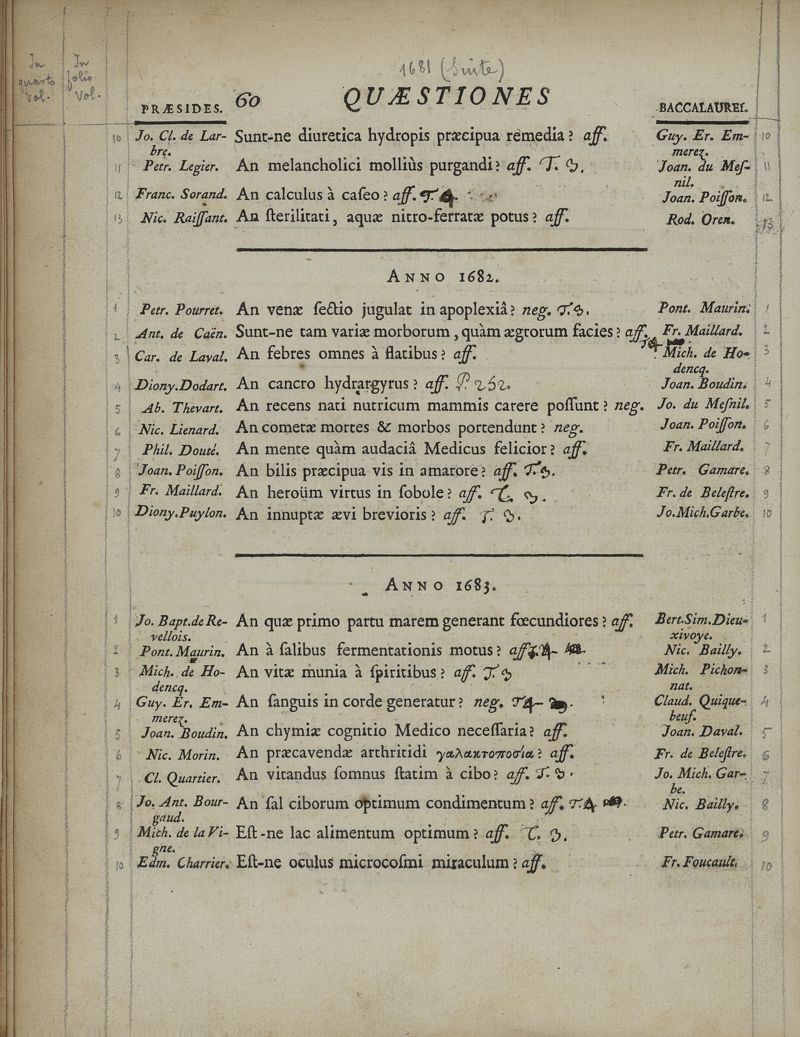 1681 (Suite)
In quarto Vol. In folio Vol.
PRÆSIDES. 60 QUÆSTIONES BACCALAUREI.
10 Jo. Cl. de Lar- Sunt-ne diuretica hydropis præcipua remedia? aff. Guy. Er. Em- 10
bre. merez.
11 Petr. Legier. An melancholici molliùs purgandi? aff. T. Joan. du Meſ- 11
nil.
12 Franc. Sorand. An calculus à caſeo? aff. T. 4. Joan. Poiſſon. 12
13 Nic. Raiſſant. An ſterilitati, aquæ nitro-ferratæ potus? aff. Rod. Oren. 13
ANNO 1682.
1 Petr. Pourret. An venæ ſectio jugulat in apoplexiâ? neg. T. Pont. Maurin. 1
2 Ant. de Caën. Sunt-ne tam variæ morborum, quàm ægrorum facies? aff. Fr. Maillard. 2
3 Car. de Laval. An febres omnes à flatibus? aff. Mich. de Ho- 3
dencq.
4 Diony. Dodart. An cancro hydrargyrus? aff. Joan. Boudin. 4
5 Ab. Thevart. An recens nati nutricum mammis carere poſſunt? neg. Jo. du Meſnil. 5
6 Nic. Lienard. An cometæ mortes & morbos portendunt? neg. Joan. Poiſſon. 6
7 Phil. Douté. An mente quàm audaciâ Medicus felicior? aff. Fr. Maillard. 7
8 Joan. Poiſſon. An bilis præcipua vis in amarore? aff. T. Petr. Gamare. 8
9 Fr. Maillard. An heroüm virtus in ſobole? aff. T. Fr. de Beleſtre. 9
10 Diony. Puylon. An innuptæ ævi brevioris? aff. T. Jo. Mich. Garbe. 10
ANNO 1683.
1 Jo. Bapt. de Re- An quæ primo partu marem generant fœcundiores? aff. Bert. Sim. Dieu- 1
vellois. xivoye.
2 Pont. Maurin. An à ſalibus fermentationis motus? aff. 4 Nic. Bailly. 2
3 Mich. de Ho- An vitæ munia à ſpiritibus? aff. T. Mich. Pichon- 3
dencq. nat.
4 Guy. Er. Em- An ſanguis in corde generatur? neg. T 4 Claud. Quique- 4
merez. beuf.
5 Joan. Boudin. An chymiæ cognitio Medico neceſſaria? aff. Joan. Daval. 5
6 Nic. Morin. An præcavendæ arthritidi γαλακτοποσία? aff. Fr. de Beleſtre. 6
7 Cl. Quartier. An vitandus ſomnus ſtatim à cibo? aff. T. Jo. Mich. Gar- 7
be.
8 Jo. Ant. Bour- An ſal ciborum optimum condimentum? aff. T. 4 Nic. Bailly. 8
gaud.
9 Mich. de la Vi- Eſt-ne lac alimentum optimum? aff. T. Petr. Gamare. 9
gne.
10 Edm. Charrier. Eſt-ne oculus microcoſmi miraculum? aff. Fr. Foucault. 10